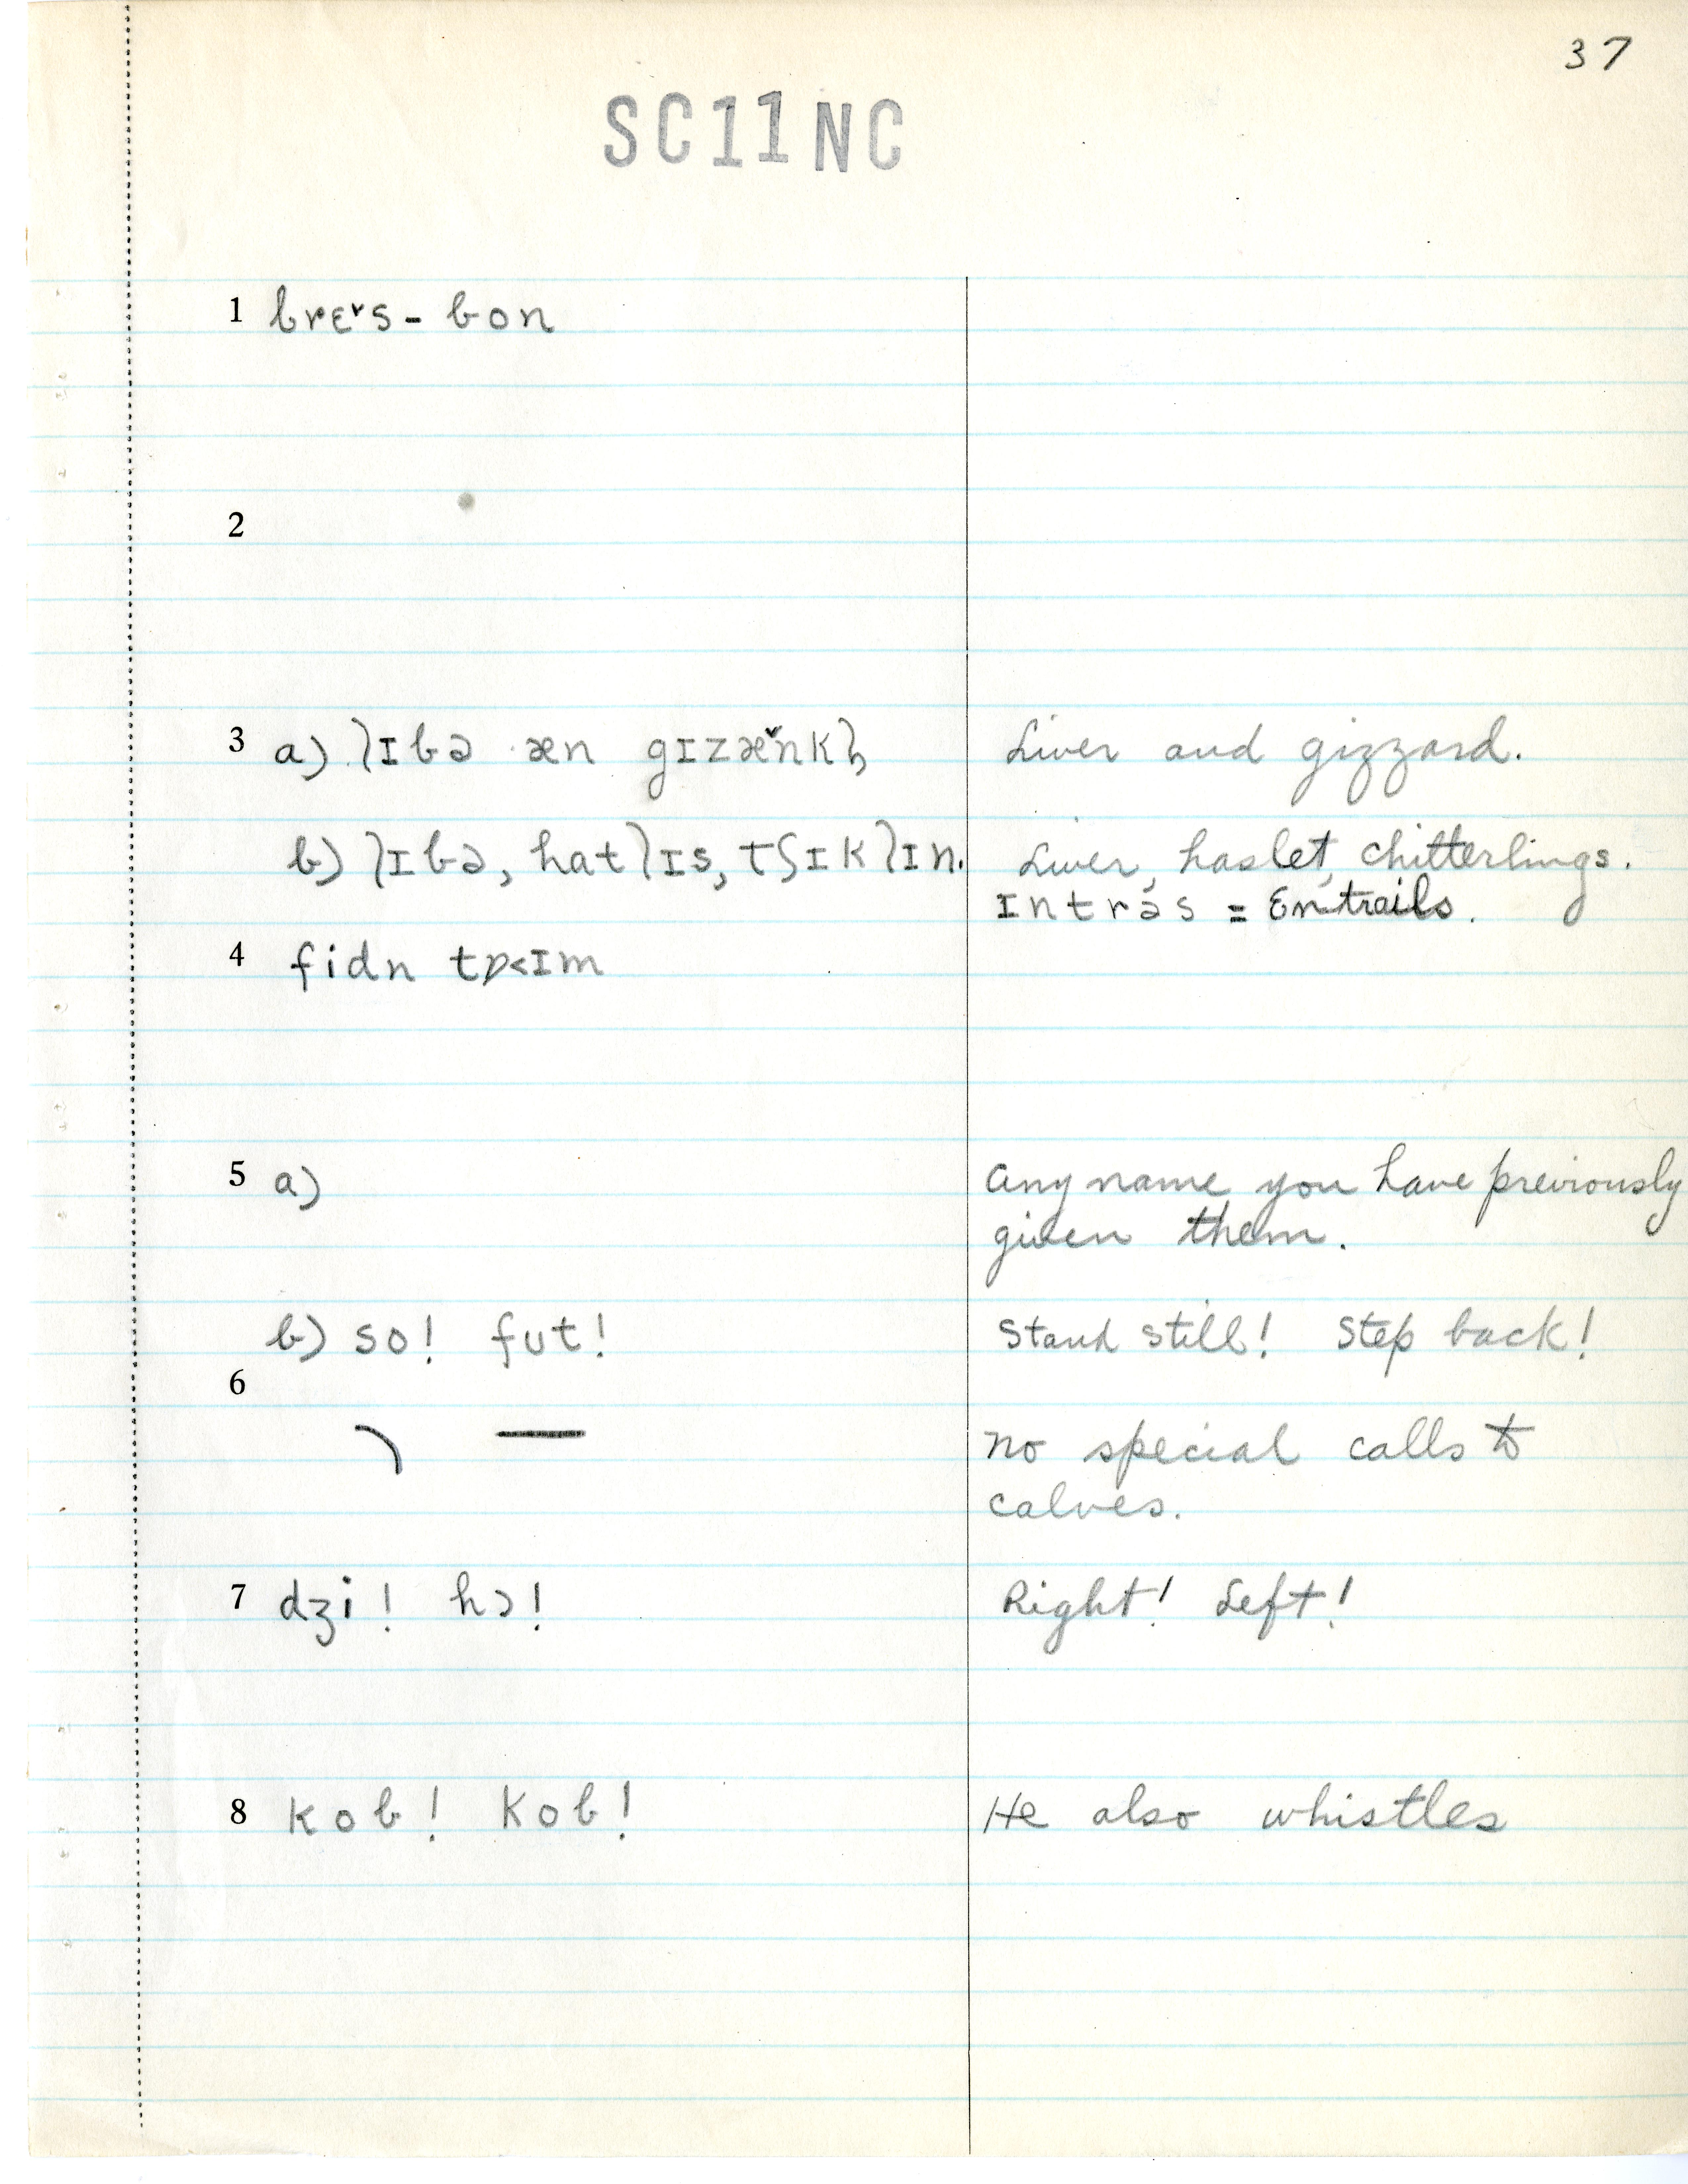 37
SC11NC
1 brɛ˅s - bon
2
3 a) lɪbə æn gɪzæ˅nkḥ Liver and gizzard.
b) lɪbə, hatlɪs, tʃɪklɪn. Liver, haslet, chitterlings.
ɪntrəs = Entrails.
4 fidn tɒ<ɪm
5 a) any name you have previously
given them.
b) so! fut! Stand still! Step back!
6
— no special calls to
calves.
7 dʒi! hɔ! Right! Left!
8 kob! kob! He also whistles